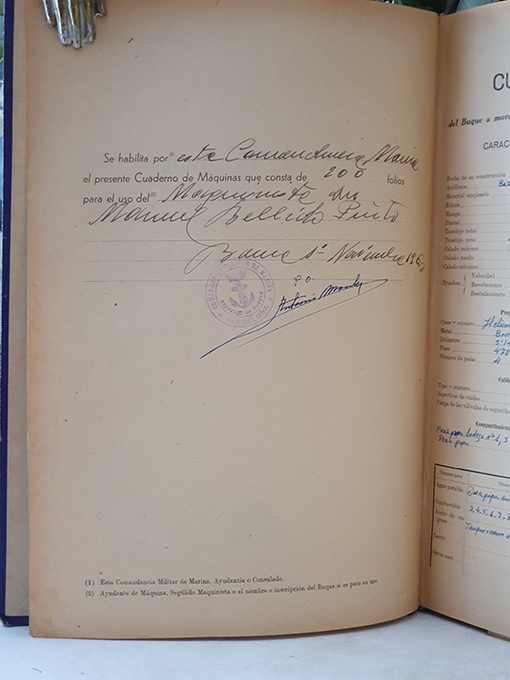 Se habilita por⁽¹⁾ esta Comandancia Marina
el presente Cuaderno de Máquinas que consta de 200 folios
para el uso del⁽²⁾ Maquinista
Manuel Bellido Pinto
1º Noviembre 196
P.O.
Antonio
BARCELONA
(1) Esta Comandancia Militar de Marina, Ayudantía o Consulado.
(2) Ayudante de Máquina, Segundo Maquinista o el nombre e inscripción del Buque si es para su uso
CU
del Buque a moto
CARAC
Fecha de su construcción
Astilleros
Material empleado
Eslora
Manga
Puntal
Tonelaje total
Tonelaje neto
Calado máximo
Calado medio
Calado máximo
Pruebas
Velocidad
Revoluciones
Resbalamiento
Clase y número Helice
Metal
Diámetro
Paso
Número de palas 4
Calde
Tipo y número
Superficie de caldeo
Carga de las válvulas de segurida
Compartimient
Agua potable
Combustible